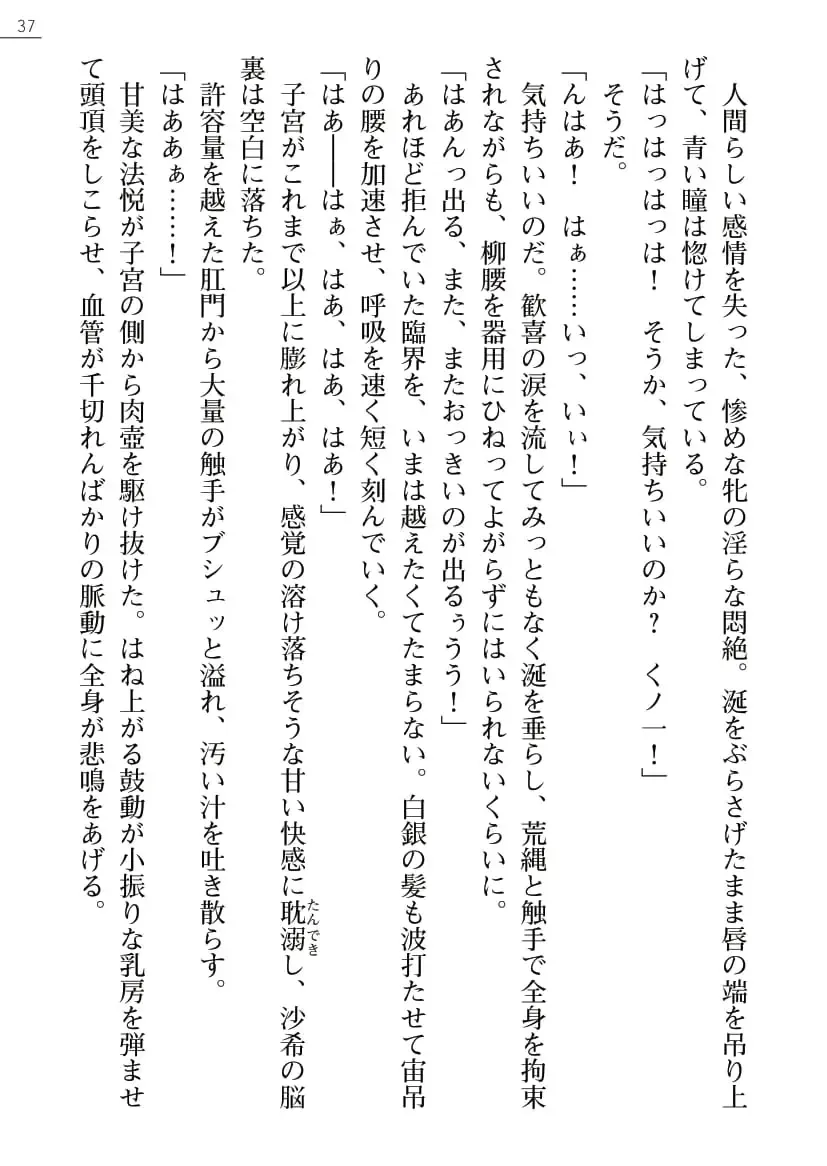 37
人間らしい感情を失った、惨めな牝の淫らな悶絶。涎をぶらさげたまま唇の端を吊り上
げて、青い瞳は惚けてしまっている。
「はっはっはっは！　そうか、気持ちいいのか？　くノ一！」
そうだ。
「んはあ！　はぁ……いっ、いぃ！」
気持ちいいのだ。歓喜の涙を流してみっともなく涎を垂らし、荒縄と触手で全身を拘束
されながらも、柳腰を器用にひねってよがらずにはいられないくらいに。
「はあんっ出る、また、またおっきいのが出るぅうう！」
あれほど拒んでいた臨界を、いまは越えたくてたまらない。白銀の髪も波打たせて宙吊
りの腰を加速させ、呼吸を速く短く刻んでいく。
「はあ――はぁ、はあ、はあ、はあ！」
子宮がこれまで以上に膨れ上がり、感覚の溶け落ちそうな甘い快感に耽溺たんできし、沙希の脳
裏は空白に落ちた。
許容量を越えた肛門から大量の触手がブシュッと溢れ、汚い汁を吐き散らす。
「はああぁ……！」
甘美な法悦が子宮の側から肉壺を駆け抜けた。はね上がる鼓動が小振りな乳房を弾ませ
て頭頂をしこらせ、血管が千切れんばかりの脈動に全身が悲鳴をあげる。